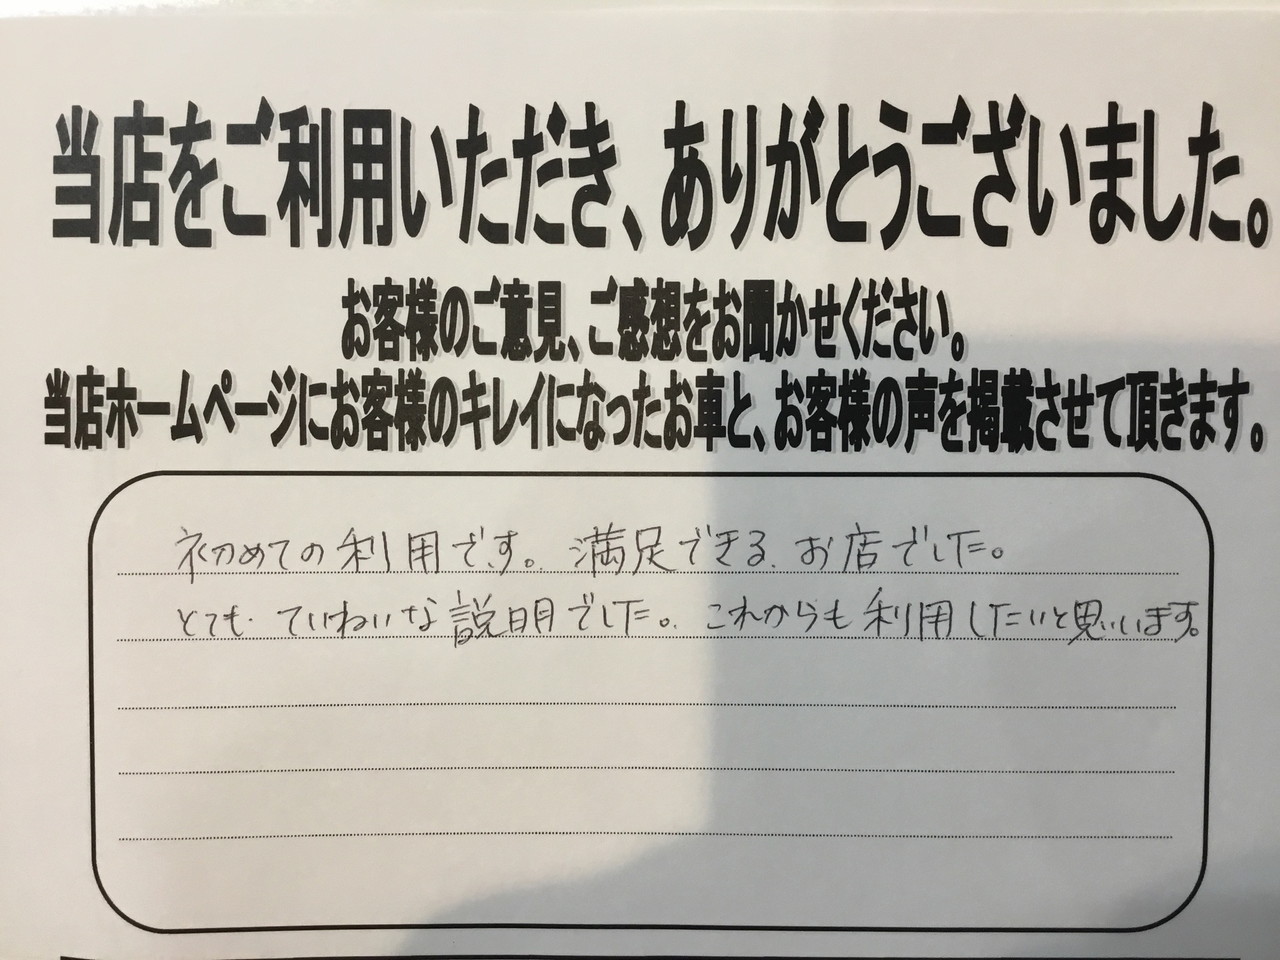 当店をご利用いただき、ありがとうございました。
お客様のご意見、ご感想をお聞かせください。
当店ホームページにお客様のキレイになったお車と、お客様の声を掲載させて頂きます。
初めての利用です。満足できるお店でした。
とてもていねいな説明でした。これからも利用したいと思います。